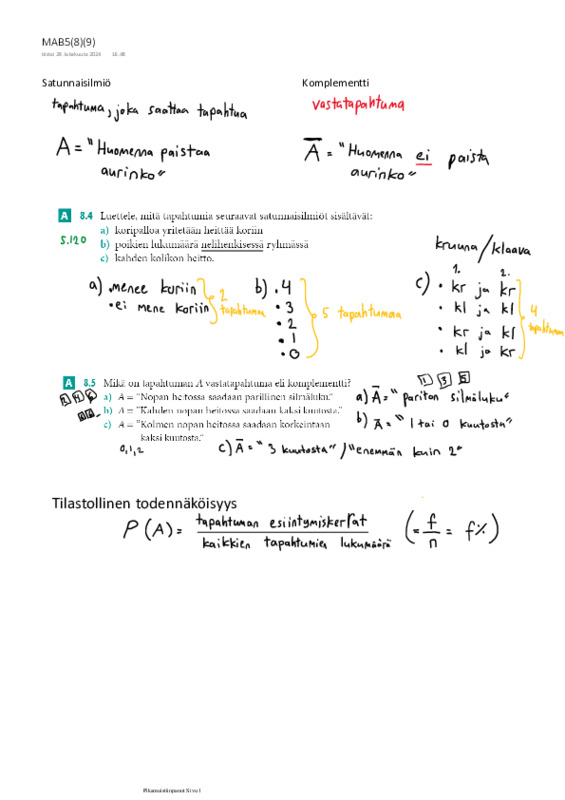 MAB5(8)(9)
16.48
Satunnaisilmiö
Komplementti
tapahtuma, joka saattaa tapahtua
vastatapahtuma
A = "Huomenna paistaa
aurinko"
A̅ = "Huomenna ei paista
aurinko"
A 8.4 Luettele, mitä tapahtumia seuraavat satunnaisilmiöt sisältävät:
S.120
a) koripalloa yritetään heittää koriin
b) poikien lukumäärä nelihenkisessä ryhmässä
c) kahden kolikon heitto.
kruuna/klaava
a) • menee koriin
• ei mene koriin
2
tapahtumaa
b) • 4
• 3
• 2
• 1
• 0
5 tapahtumaa
1. 2.
c) • kr ja kr
• kl ja kl
• kr ja kl
• kl ja kr
4
tapahtumaa
A 8.5 Mikä on tapahtuman A vastatapahtuma eli komplementti?
2 4 6
a) A = "Nopan heitossa saadaan parillinen silmäluku."
b) A = "Kahden nopan heitossa saadaan kaksi kuutosta."
c) A = "Kolmen nopan heitossa saadaan korkeintaan
kaksi kuutosta."
0,1,2
1 3 5
a) A̅ = "pariton silmäluku"
b) A̅ = "1 tai 0 kuutosta"
c) A̅ = "3 kuutosta" / "enemmän kuin 2"
Tilastollinen todennäköisyys
P(A) = tapahtuman esiintymiskerrat / kaikkien tapahtumien lukumäärä (= f/n = f%)